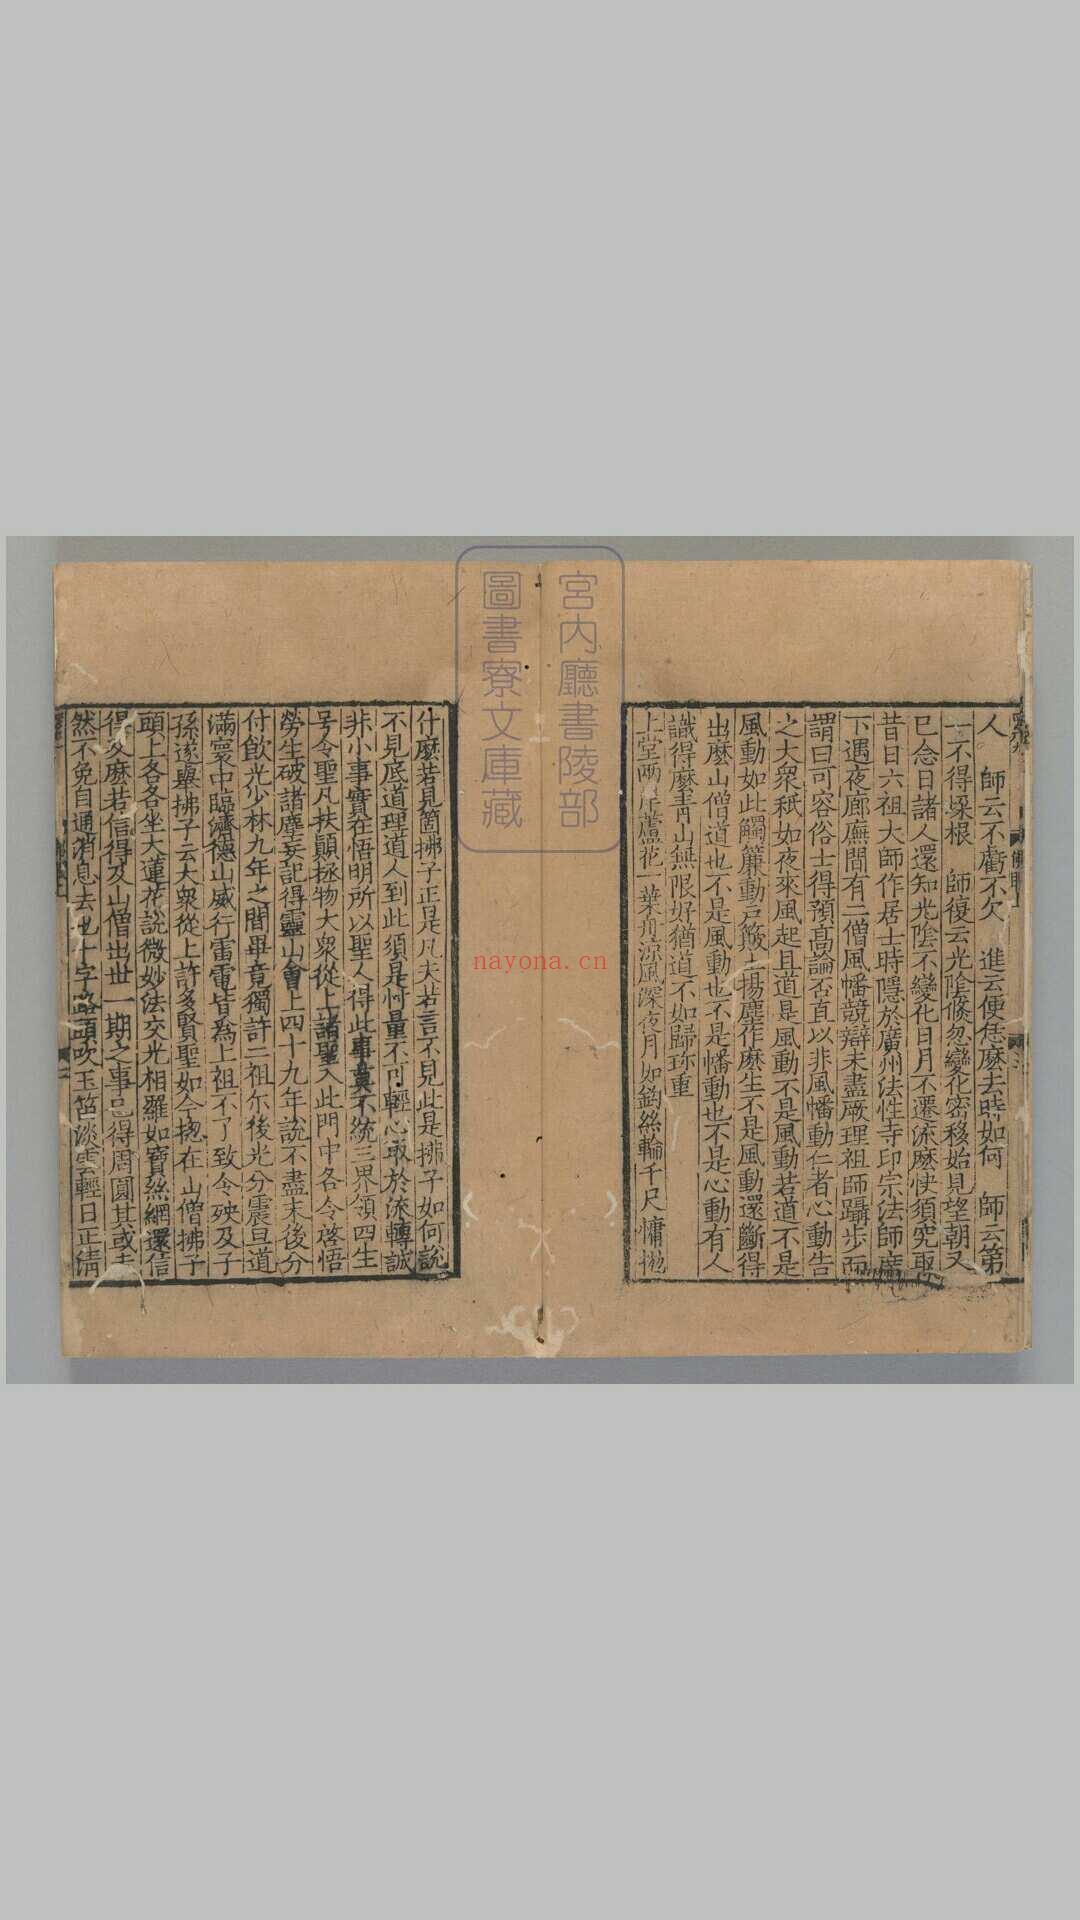 人　師云不虧不欠　進云便恁麼去時如何　師云第
一不得梁根　師復云光陰倏忽變化密移始見望朝又
已念日諸人還知光陰不變化日月不遷流麼快須究取
昔日六祖大師作居士時隱於廣州法性寺印宗法師席
下遇夜廊廡間有二僧風幡競辯未盡厥理祖師躡步而
謂曰可容俗士得預高論否直以非風幡動仁者心動告
之大衆秖如夜來風起且道是風動不是風動若道不是
風動如此觸簾動戶簸土揚塵作麽生不是風動還斷得
出麽山僧道也不是風動也不是幡動也不是心動有人
識得麽青山無限好猶道不如歸珎重
上堂兩岸蘆花一葉舟涼風深夜月如鈎絲輪千尺慵抛
什麽若見箇拂子正是凡夫若言不見此是拂子如何說
不見底道理道人到此須是忖量不可輕心取於流轉誠
非小事實在悟明所以聖人得此事莫不統三界領四生
号令聖凡扶顛拯物大衆從上諸聖入此門中各令啓悟
勞生破諸塵妄記得靈山會上四十九年說不盡末後分
付飲光少林九年之間畢竟獨許二祖尒後光分震旦道
滿寰中臨濟德山威行雷電皆爲上祖不了致令殃及子
孫遂舉拂子云大衆從上許多賢聖如今揔在山僧拂子
頭上各各坐大蓮花說微妙法交光相羅如寶絲網還信
得及麽若信得及山僧出世一期之事已得周圓其或未
然不免自通消息去也十字路頭吹玉笛淡雲輕日正淸
宮内廳書陵部
圖書寮文庫藏
nayona.cn